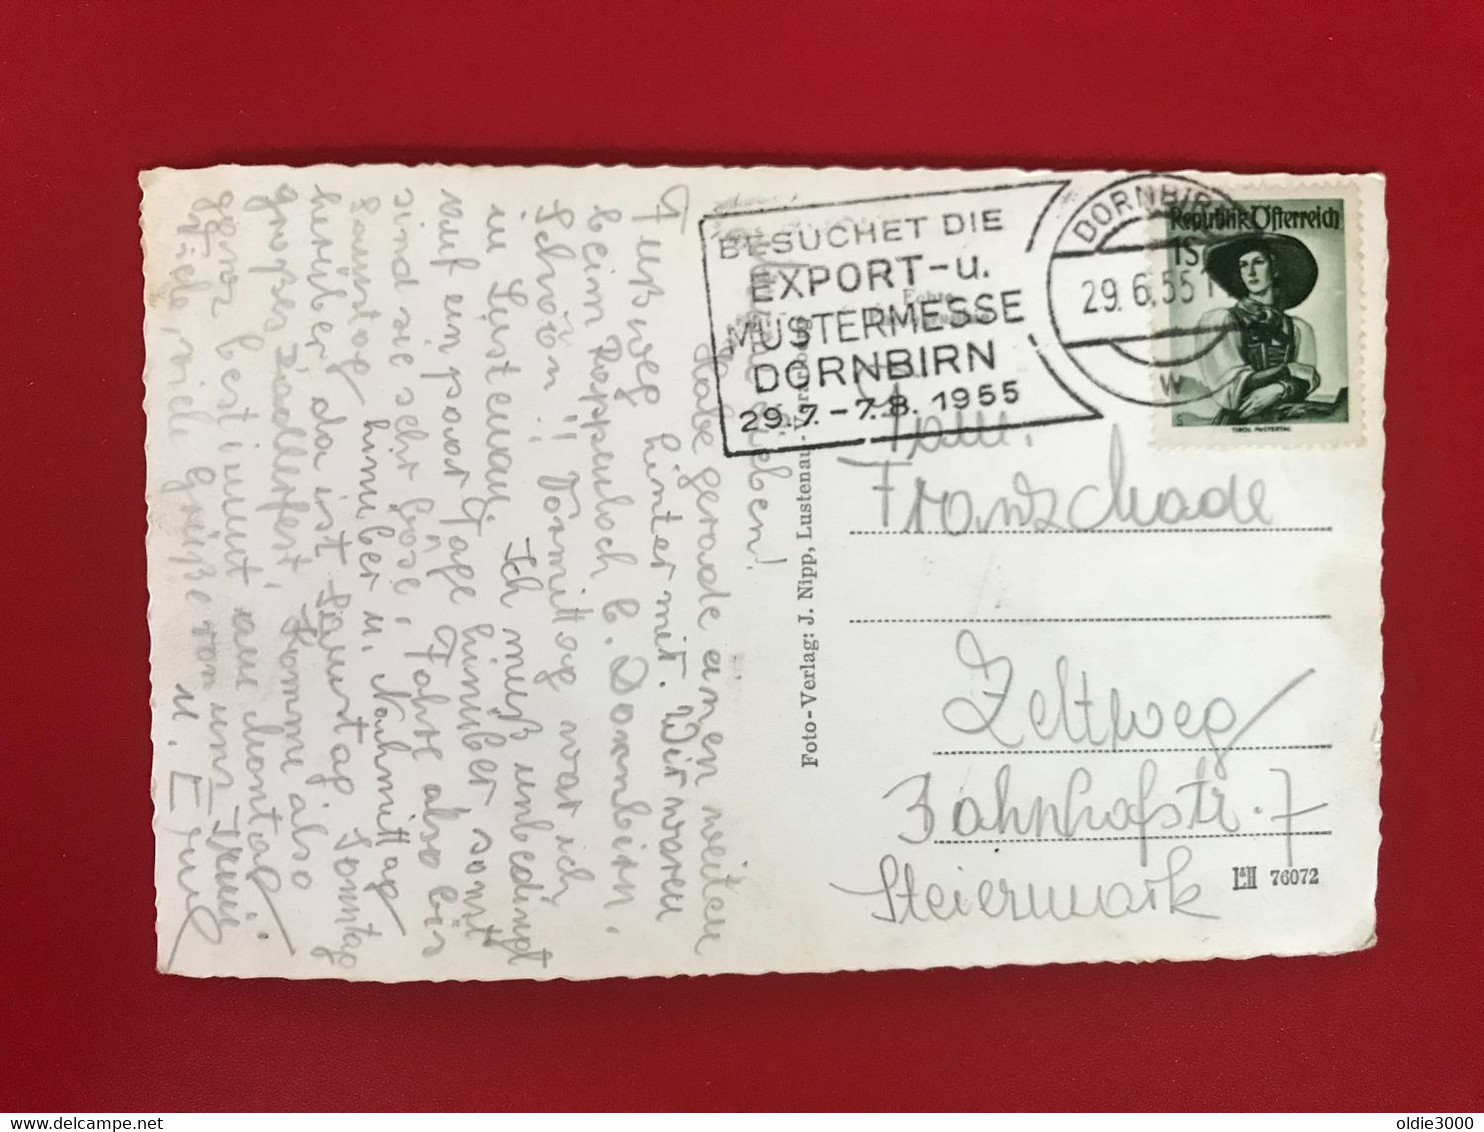 BESUCHET DIE
EXPORT-u.
MUSTERMESSE
DORNBIRN
29.7.-7.8. 1955
DORNBIRN
29.6.55
w
Republik Österreich
TIROL PUSTERTAL
Echte
Foto-Verlag: J. Nipp, Lustenau-Vorarlberg
Lieben!
Habe gerade einen weiten
Fußweg hinter mir. Wir waren
beim Rappenloch b. Dornbirn.
Schöön!! Vormittag war ich
in Lustenau. Ich muß unbedingt
auf ein paar Tage hinüber sonst
sind sie sehr böse. Fahre also bis
Samstag hinüber u. Nachmittag
herüber da ist Samstag, Sonntag
großes Radlerfest. Komme also
ganz bestimmt am Montag.
viele Grüße von uns
u. Emil
Fam.
Franz Schade
Zeltweg
Bahnhofstr. 7
Steiermark
76072
oldie3000